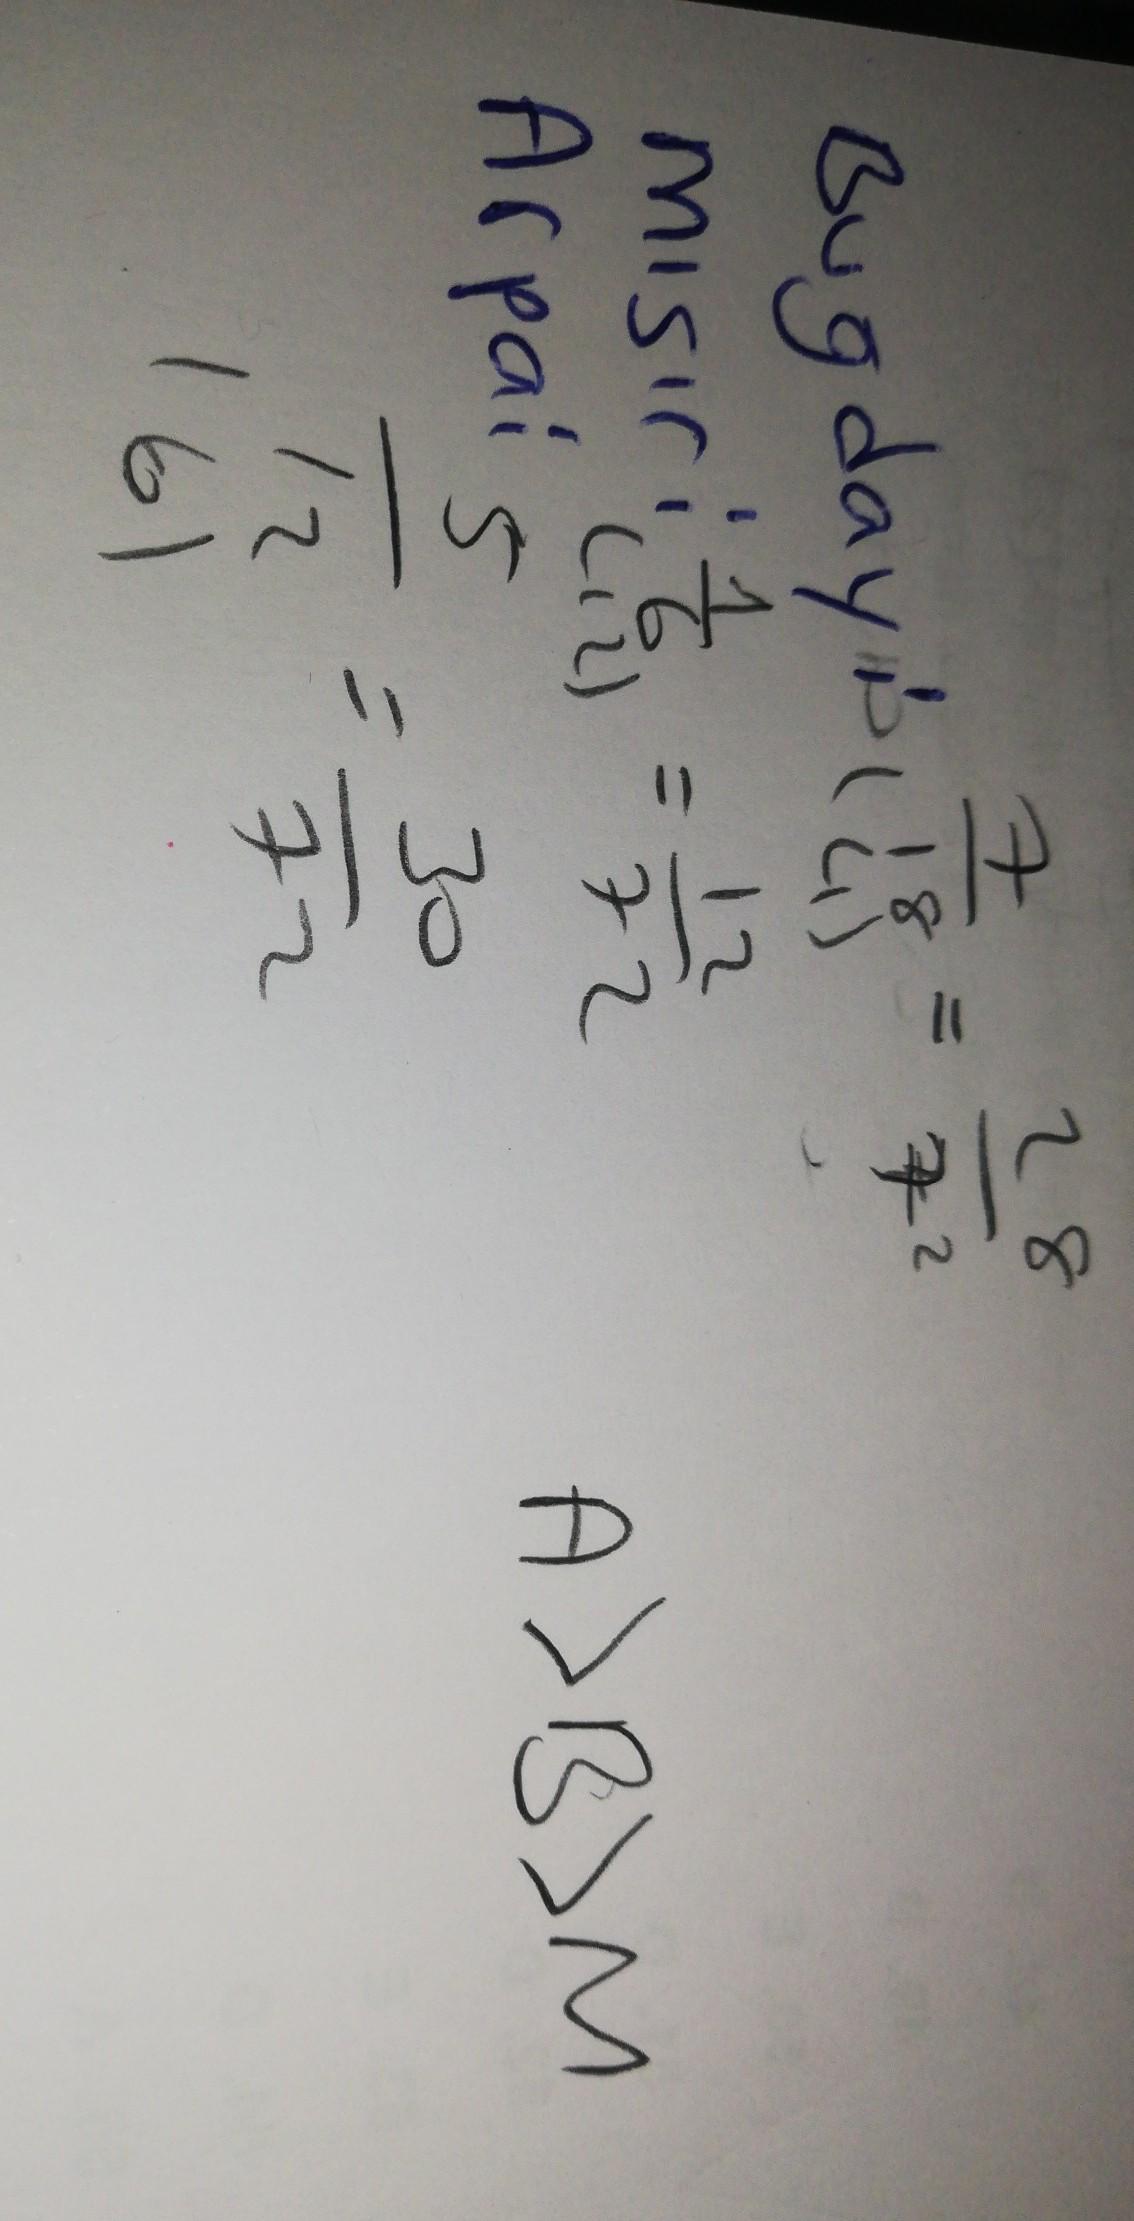 Buğday: 7/18 = 28/72
(4)
Mısır: 1/6 = 12/72
(12)
Arpa: 5/12 = 30/72
(6)
A>B>M